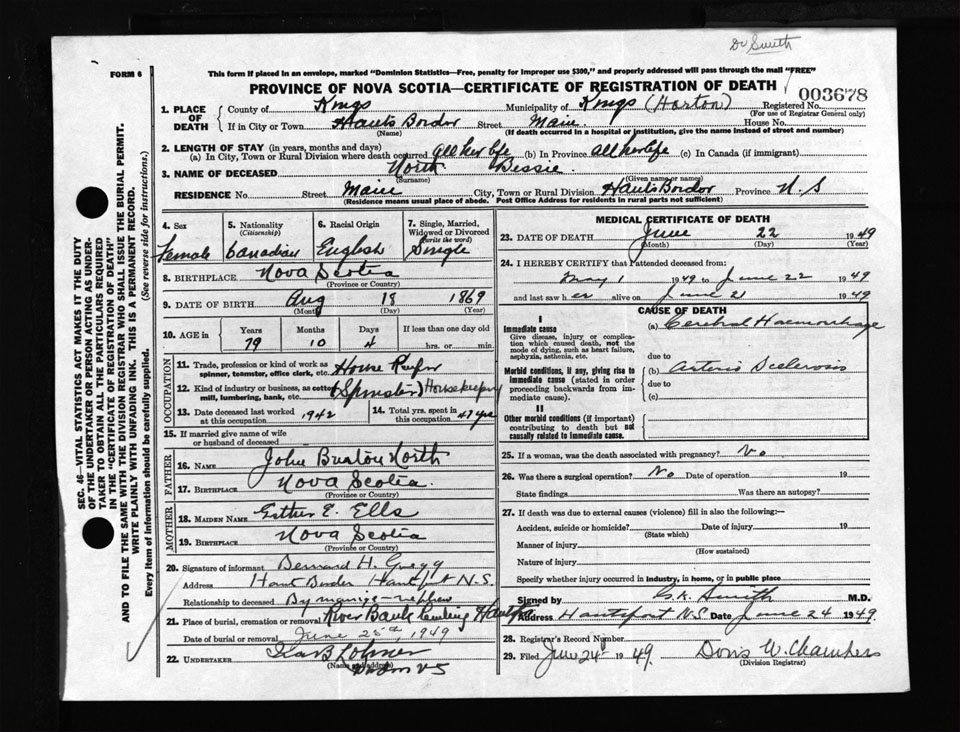 Dr Smith
FORM 6
This form if placed in an envelope, marked "Dominion Statistics—Free, penalty for improper use $300," and properly addressed will pass through the mail "FREE"
PROVINCE OF NOVA SCOTIA—CERTIFICATE OF REGISTRATION OF DEATH
003678
1. PLACE OF DEATH
County of Kings Municipality of Kings (Horton) Registered No.
(For use of Registrar General only)
If in City or Town Hants Bordor Street Main House No.
(Name) (If death occurred in a hospital or institution, give the name instead of street and number)
2. LENGTH OF STAY (in years, months and days)
(a) In City, Town or Rural Division where death occurred all her life (b) In Province all her life (c) In Canada (if immigrant)
3. NAME OF DECEASED North Bessie
(Surname) (Given name or names)
RESIDENCE No. Street Main City, Town or Rural Division Hants Bordor Province N.S
(Residence means usual place of abode. Post Office Address for residents in rural parts not sufficient)
4. Sex Female
5. Nationality (Citizenship) Canadian
6. Racial Origin English
7. Single, Married, Widowed or Divorced (Write the word) Single
8. BIRTHPLACE Nova Scotia
(Province or Country)
9. DATE OF BIRTH Aug 18 1869
(Month) (Day) (Year)
10. AGE in Years Months Days If less than one day
79 10 4 hrs. or min.
OCCUPATION
11. Trade, profession or kind of work as spinner, teamster, office clerk, etc. House Keeper
12. Kind of industry or business, as cotton mill, lumbering, bank, etc. (Spinster) Housekeeping
13. Date deceased last worked at this occupation 1942
14. Total yrs. spent in this occupation 47 yrs
15. If married give name of wife or husband of deceased
FATHER
16. NAME John Burton North
17. BIRTHPLACE Nova Scotia
(Province or Country)
MOTHER
18. MAIDEN NAME Esther E. Ells
19. BIRTHPLACE Nova Scotia
(Province or Country)
20. Signature of informant Bernard H. Gregg
Address Hants Border Hantsport N.S.
Relationship to deceased By marrige - nephew
21. Place of burial, cremation or removal River Bank Cemetery
Date of burial or removal June 25th, 1949
22. UNDERTAKER
(Name and address)
N S
MEDICAL CERTIFICATE OF DEATH
23. DATE OF DEATH June 22 1949
(Month) (Day) (Year)
24. I HEREBY CERTIFY that I attended deceased from:
May 1 1949 to June 22 1949
and last saw her alive on June 21 1949
CAUSE OF DEATH
I
Immediate cause
Give disease, injury or complication which caused death, not the mode of dying, such as heart failure, asphyxia, asthenia, etc.
(a) Cerebral Haemorrhage
due to
Morbid conditions, if any, giving rise to immediate cause (stated in order proceeding backwards from immediate cause).
(b) Arterio Sclerosis
due to
(c)
II
Other morbid conditions (if important) contributing to death but not causally related to immediate cause.
25. If a woman, was the death associated with pregnancy? No
26. Was there a surgical operation? No Date of operation 19
State findings Was there an autopsy?
27. If death was due to external causes (violence) fill in also the following:—
Accident, suicide or homicide? Date of injury 19
(State which)
Manner of injury
(How sustained)
Nature of injury
Specify whether injury occurred in industry, in home, or in public place
Signed by Smith M.D.
Address Hantsport N.S. Date June 24 1949
28. Registrar's Record Number
29. Filed June 24 1949. Doris W. Chambers
(Division Registrar)
SEC. 46—VITAL STATISTICS ACT MAKES IT THE DUTY
OF THE UNDERTAKER OR PERSON ACTING AS UNDER-
TAKER TO OBTAIN ALL THE PARTICULARS REQUIRED
IN THE "CERTIFICATE OF REGISTRATION OF DEATH"
AND TO FILE THE SAME WITH THE DIVISION REGISTRAR WHO SHALL ISSUE THE BURIAL PERMIT.
WRITE PLAINLY WITH UNFADING INK. THIS IS A PERMANENT RECORD.
Every item of information should be carefully supplied. (See reverse side for instructions.)